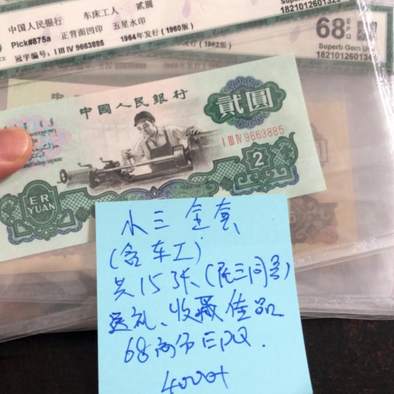 中国人民银行 车床工人 贰圆
Pick#875a 正背面凹印 五星水印
冠字编号：I III IV 9663885 1964年发行(1960版)
1821012601
68
Superb Gem Unc
1821012601
中國人民銀行
貳圓
I III IV 9663885
2
ER
YUAN
水三全套
(含车工)
共15张(尾三同号)
送礼、收藏佳品
68高分EPQ.